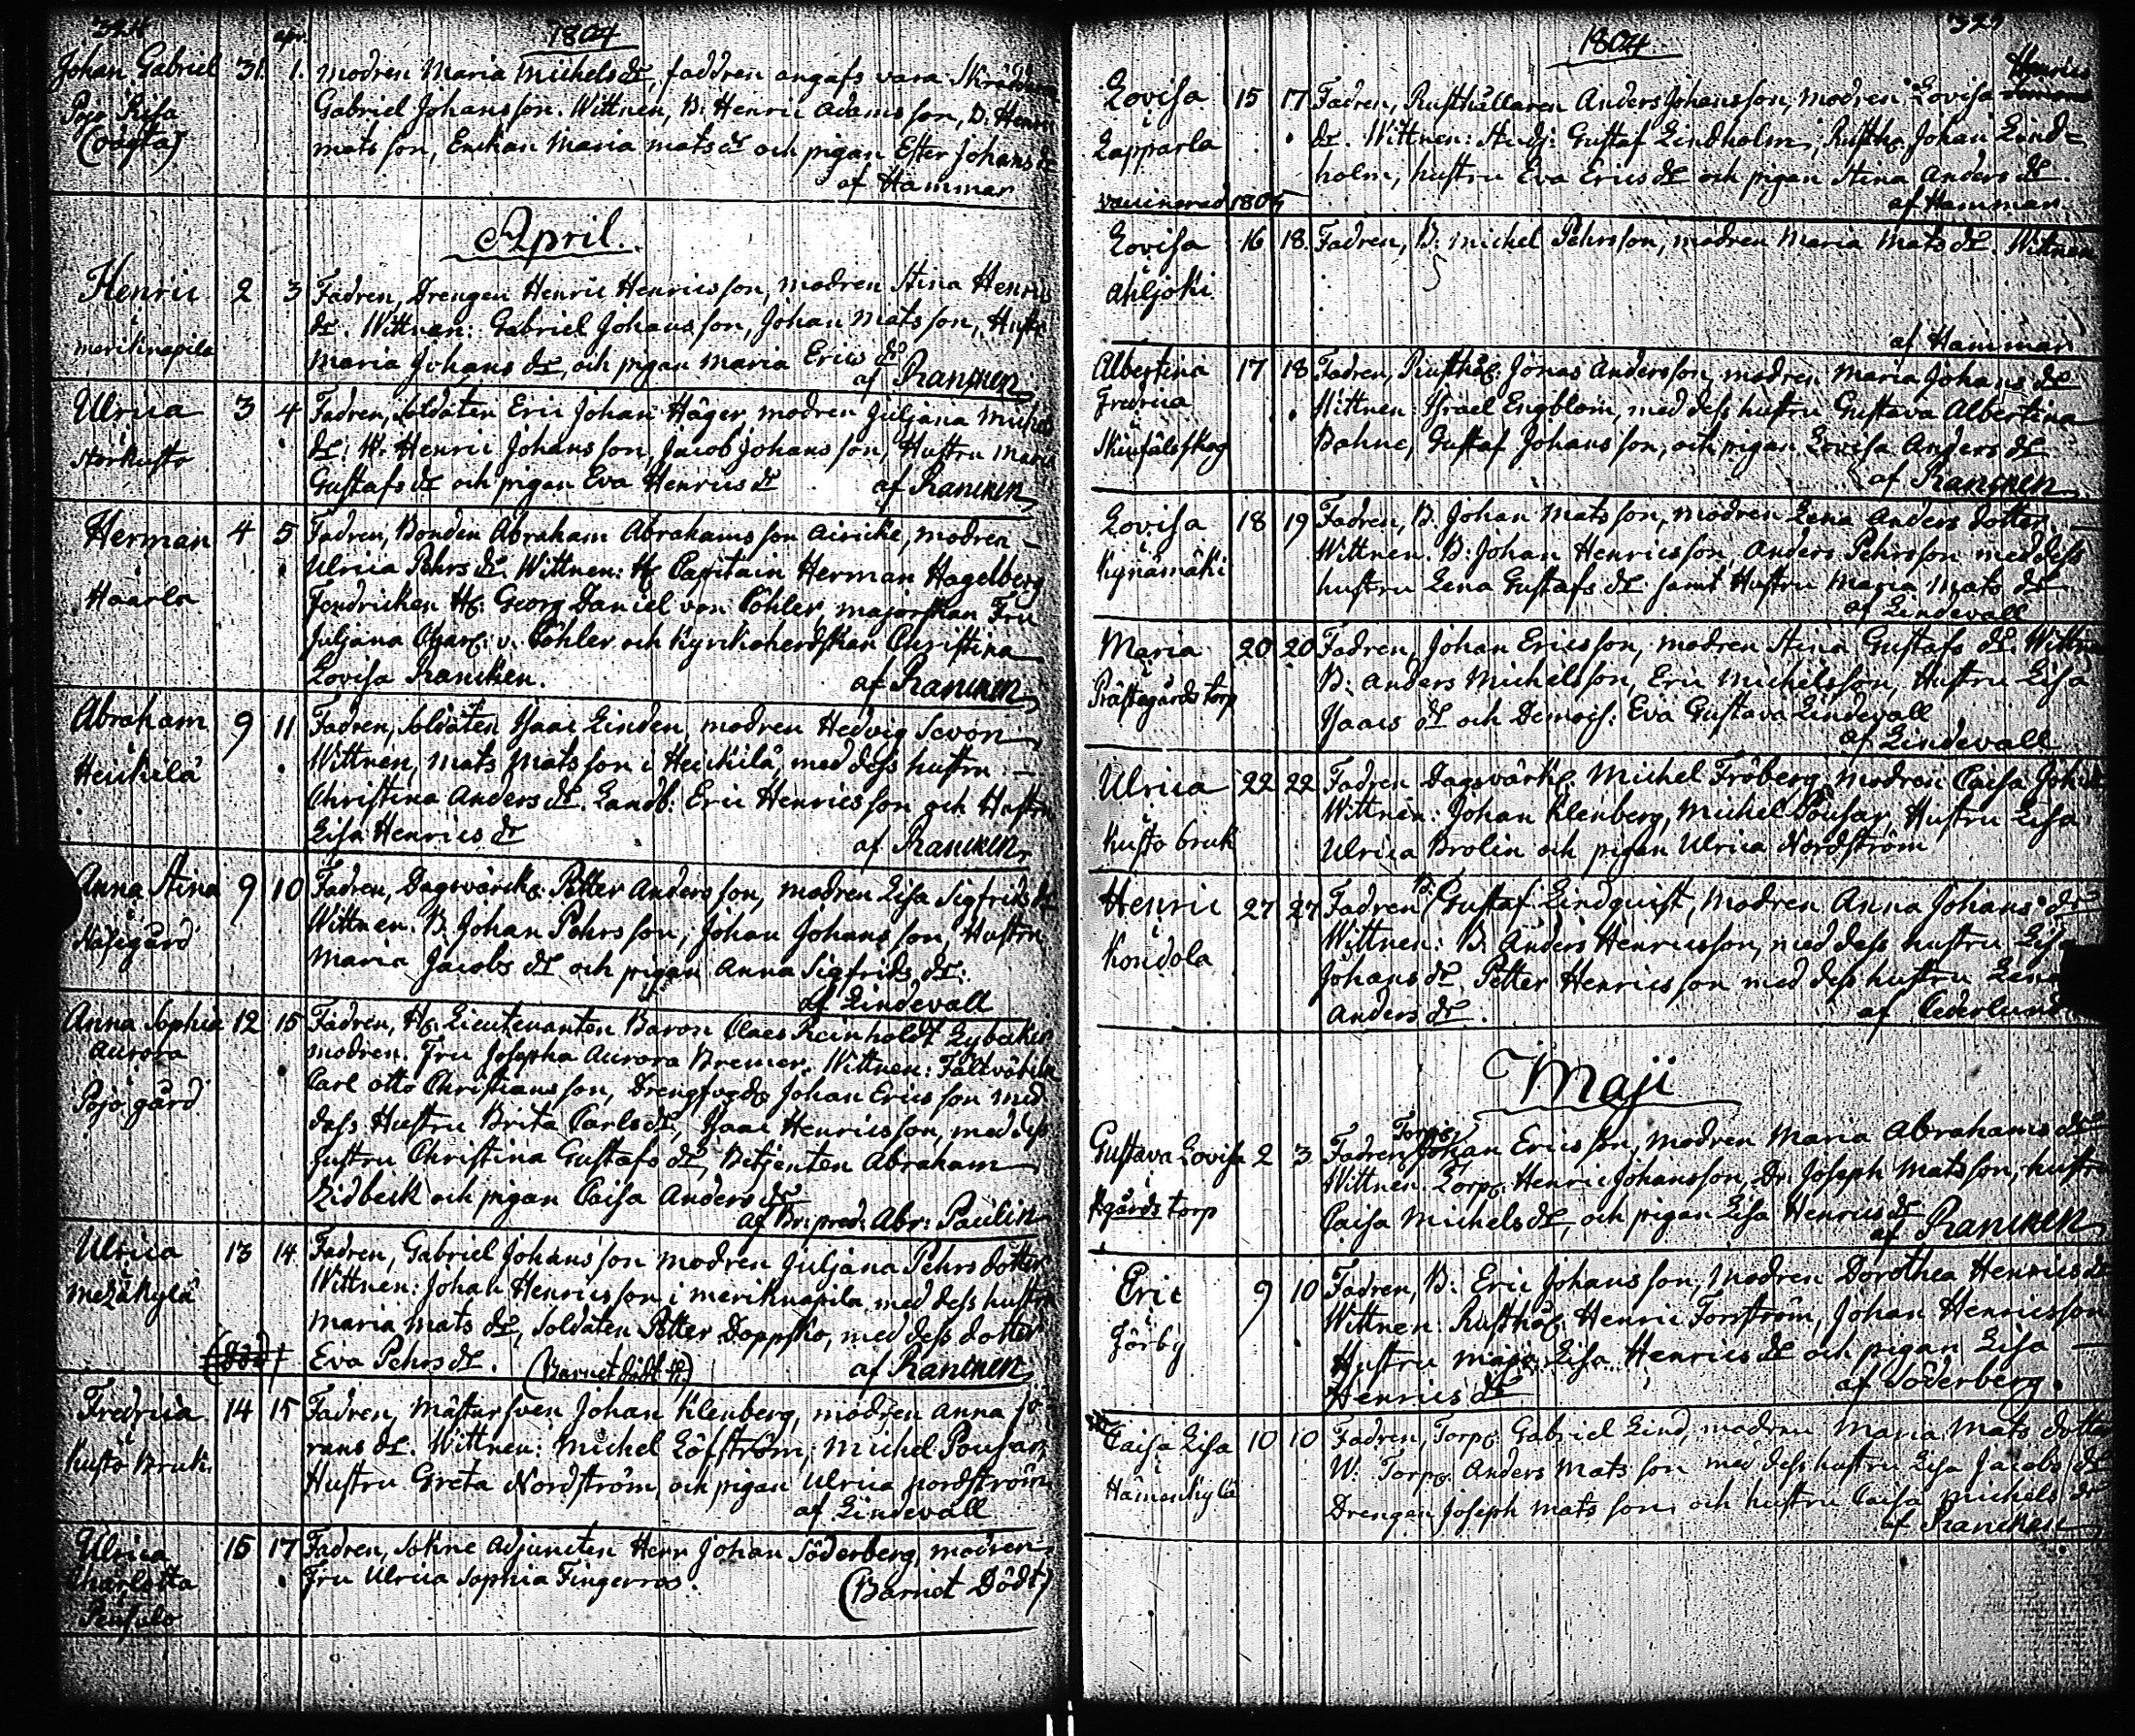 1804
apr.
Johan Gabriel 31. 1. Modren Maria Michels dr, faddren angafs vara Skräddaren
Pojo Risa Gabriel Johansson. Wittnen, B: Henric Adamsson, D. Henric
(oägta) Matsson, Enkan Maria Mats dr och pigan Ester Johans dr
af Hammar
April.
Henric 2 3 Fadren, Drengen Henric Henricsson, modren Stina Henrics
i dr. Wittnen: Gabriel Johansson, Johan Matsson, Hustr.
meriknapila Maria Johans dr, och pigan Maria Erics dr
af Rancken
Ulrica 3 4 Fadren, Soldaten Eric Johan Häger modren Juljana Michels
i dr: W. Henric Johansson, Jacob Johansson, Hustru Maria
Storkusto Gustafs dr och pigan Eva Henrics dr af Rancken
Herman 4 5 Fadren, Bonden Abraham Abrahamsson Airicke, modren
i Ulrica Pehrs dr. Wittnen: Hr Capitain Herman Hagelberg
Haarla Fendricken Hr: Georg Daniel von Cöhler, majorskan Fru
Juljana Char: v. Cöhler och Kyrckoherdskan Christina
Lovisa Rancken. af Rancken
Abraham 9 11 Fadren, Soldaten Isaac Linden, modren Hedvig Sevon
Heickilä Wittnen, Mats Matsson i Heickilä, med dess hustru
Christina Anders dr. Landb: Eric Henricsson och Hustru
Lisa Henrics dr af Rancken
Anna Stina 9 10 Fadren, Dagsvärck: Petter Andersson, modren Lisa Sigfrids dr
i Wittnen. B. Johan Pehrsson, Johan Johansson, Hustru
Näsegård Maria Jacobs dr och pigan Anna Sigfrids dr:
af Lindevall
Anna Sophia 12 15 Fadren, Hr: Lieutenanten Baron Claes Reinholdt Lybecker
Aurora modren. Fru Josepha Aurora Bremer. Wittnen: Fältväbeln
i Carl Otto Christiansson, Drengfogd: Johan Ericsson med
Pojo gård dess Hustru Brita Carls dr, Isaac Henricsson, med dess
hustru Christina Gustafs dr, Betjenten Abraham
Lidbeck och pigan Caisa Anders dr
af Br: pred: Abr: Paulin
Ulrica 13 14 Fadren, Gabriel Johansson modren Juljana Pehrs dotter
i Wittnen: Johan Henricsson i meriknapila med dess hustru
Mezäkylä Maria Mats dr, Soldaten Petter Doppsko, med dess dotter
Eva Pehrs dr. (Barnet dödt) af Rancken
Fredrica 14 15 Fadren, Mästersven Johan Klenberg, modren Anna Jo-
i rans dr. Wittnen: Michel Löfström, Michel Pousar,
Kusto Bruk. Hustru Greta Nordström, och pigan Ulrica Nordström
af Lindevall
Ulrica 15 17 Fadren, Sokne Adjuncten Herr Johan Söderberg, modren
Charlotta Fru Ulrica Sophia Fingerroos. (Barnet Dödt)
1804
Henrics
Lovisa 15 17 Fadren, Rusthållaren Anders Johansson, modren Lovisa
i dr. Wittnen: Gustaf Lindholm, Rusth: Johan Lind-
Lapparla holm, hustru Eva Erics dr och pigan Stina Anders dr.
1805 af Hammar
Lovisa 16 18. Fadren, B: Michel Pehrsson, modren Maria Mats dr. Wittnen
i
Ahljoki
af Hammar
Albertina 17 18 Fadren, Rusthål: Jonas Andersson, modren Maria Johans dr
Fredrica Wittnen: Israel Engblom, med dess hustru Gustava Albertina
i Bahne, Gustaf Johansson, och pigan Lovisa Anders dr
af Rancken
Lovisa 18 19 Fadren, B. Johan Matsson, modren Lena Anders dotter
i Wittnen. B: Johan Henricsson, Anders Pehrsson med dess
Kynämäki hustru Lena Gustafs dr samt Hustru Maria Mats dr
af Lindevall
Maria 20 20 Fadren, Johan Ericsson, modren Stina Gustafs dr. Wittn
i B: Anders Michelsson, Eric Michelsson, Hustru Lisa
Prästegårds torp Isaacs dr och Demois: Eva Gustava Lindevall
af Lindevall
Ulrica 22 22 Fadren Dagsvärk: Michel Fröberg, modren Caisa Johns
i Wittnen: Johan Klenberg, Michel Pousar, Hustru Lisa
Kusto bruk Ulrica Brolin och pigan Ulrica Nordström
Henric 27 27 Fadren B. Gustaf Lindquist, modren Anna Johans dr
i Wittnen: B. Anders Henricsson, med dess hustru Lisa
Kondola Johans dr, Petter Henricsson med dess hustru Lena
Anders dr. af Cederlund
Maji
Torp:
Gustava Lovisa 2 3 Fadren Johan Ericsson, modren Maria Abrahams dr
i Wittnen. Torp: Henric Johansson, Dr. Joseph Matsson, hustru
Pgårds torp Caisa Michels dr, och pigan Lisa Henrics dr
af Rancken
Eric 9 10 Fadren, B: Eric Johansson, modren Dorothea Henrics dr
i Wittnen: Rusthål: Henric Forsström, Johan Henricsson
Jörby Hustru Maja Lisa Henrics dr och pigan Lisa
Henrics dr af Söderberg.
Caisa Lisa 10 10 Fadren, Torp: Gabriel Lind, modren Maria Mats dotter
i W: Torp: Anders Matsson med dess hustru Lisa Jacobs dr
Hämenkylä Drengen Joseph Matsson och hustru Caisa Michels dr
af Rancken